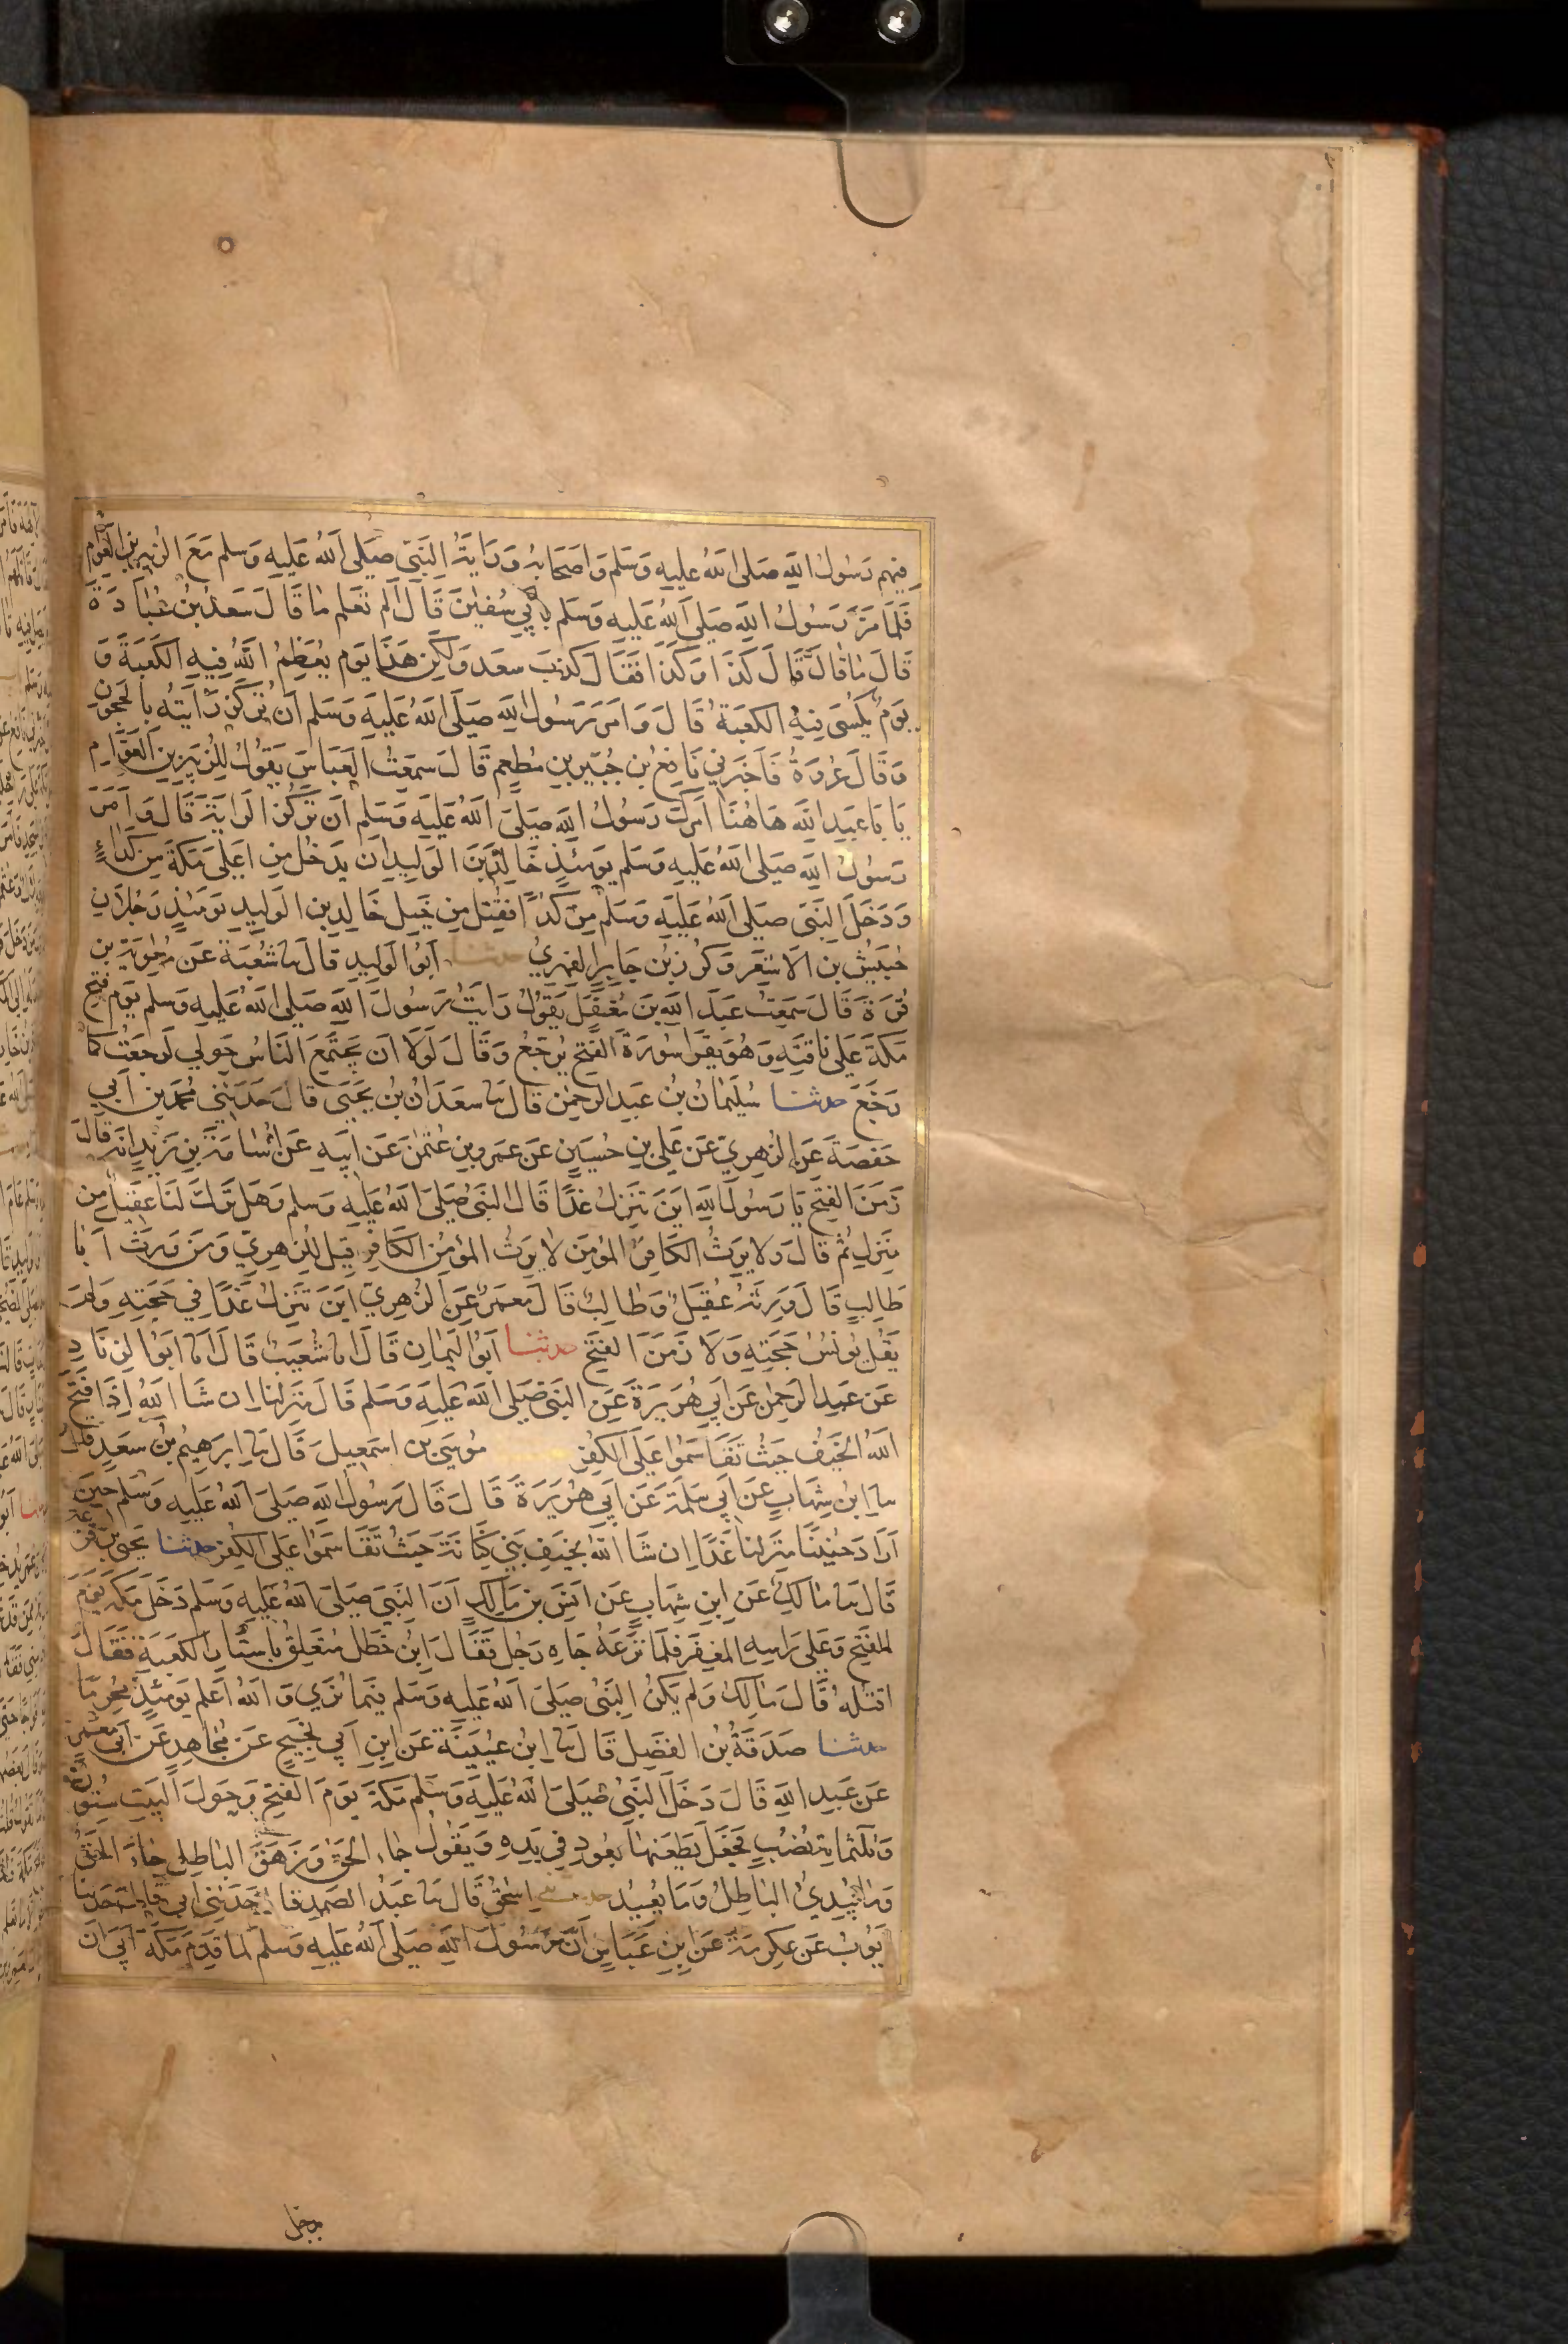 فيهم رسول الله صلى الله عليه وسلم واصحابه وراية النبي صلى الله عليه وسلم مع الزبير بن العوام
فلما مر رسول الله صلى الله عليه وسلم بابي سفين قال الم تعلم ما قال سعد بن عبادة
قال ما قال قال كذا وكذا فقال كذب سعد ولكن هذا يوم يعظم الله فيه الكعبة و
يوم يكسى فيه الكعبة قال وامر رسول الله صلى الله عليه وسلم ان تركز رايته بالحجون
وقال عروة فاخبرني نافع بن جبير بن مطعم قال سمعت العباس يقول للزبير بن العوام
يا با عبد الله هاهنا امرك رسول الله صلى الله عليه وسلم ان تركز الراية قال وامر
رسول الله صلى الله عليه وسلم يومئذ خالد بن الوليد ان يدخل من اعلى مكة من كداء
ودخل النبي صلى الله عليه وسلم من كدا فقتل من خيل خالد بن الوليد يومئذ رجلان
حبيش بن الاشعر وكرز بن جابر الفهري حدثنا ابو الوليد قال نا شعبة عن معوية بن
قرة قال سمعت عبد الله بن مغفل يقول رايت رسول الله صلى الله عليه وسلم يوم فتح
مكة على ناقته وهو يقرا سورة الفتح يرجع وقال لولا ان يجتمع الناس حولي لرجعت كما
رجع حدثنا سليمان بن عبد الرحمن قال نا سعدان بن يحيى قال حدثني محمد بن ابي
حفصة عن الزهري عن علي بن حسين عن عمرو بن عثمن عن ابيه عن اسامة بن زيد انه قال
زمن الفتح يا رسول الله اين تنزل غدا قال النبي صلى الله عليه وسلم وهل ترك لنا عقيل من
منزل ثم قال ولا يرث الكافر المؤمن لا يرث المؤمن الكافر قيل للزهري ومن ورث ابا
طالب قال ورثه عقيل وطالب قال معمر عن الزهري اين تنزل غدا في حجته ولم
يقل يونس حجته ولا زمن الفتح حدثنا ابو اليمان قال انا شعيب قال انا ابو الزناد
عن عبد الرحمن عن ابي هريرة عن النبي صلى الله عليه وسلم قال منزلنا ان شا الله اذا فتح
الله الخيف حيث تقاسموا على الكفر موسى بن اسمعيل قال نا ابرهيم بن سعد قال
نا ابن شهاب عن ابي سلمة عن ابي هريرة قال قال رسول الله صلى الله عليه وسلم حين
اراد حنينا منزلنا غدا ان شا الله بخيف بني كنانة حيث تقاسموا على الكفر حدثنا يحيى بن قزعة
قال نا مالك عن ابن شهاب عن انس بن مالك ان النبي صلى الله عليه وسلم دخل مكة يوم
الفتح وعلى راسه المغفر فلما نزعه جاه رجل فقال ابن خطل متعلق باستار الكعبة فقال
اقتله قال مالك ولم يكن النبي صلى الله عليه وسلم فيما نرى والله اعلم يومئذ محرما
حدثنا صدقة بن الفضل قال نا ابن عيينة عن ابن ابي نجيح عن مجاهد عن ابي معمر
عن عبد الله قال دخل النبي صلى الله عليه وسلم مكة يوم الفتح وحول البيت ستون
وثلثماية نصب فجعل يطعنها بعود في يده ويقول جاء الحق وزهق الباطل جاء الحق
وما يبدئ الباطل وما يعيد حدثني اسحق قال نا عبد الصمد قال حدثني ابي قال حدثنا
ايوب عن عكرمة عن ابن عباس ان رسول الله صلى الله عليه وسلم لما قدم مكة ابى ان
يدخل